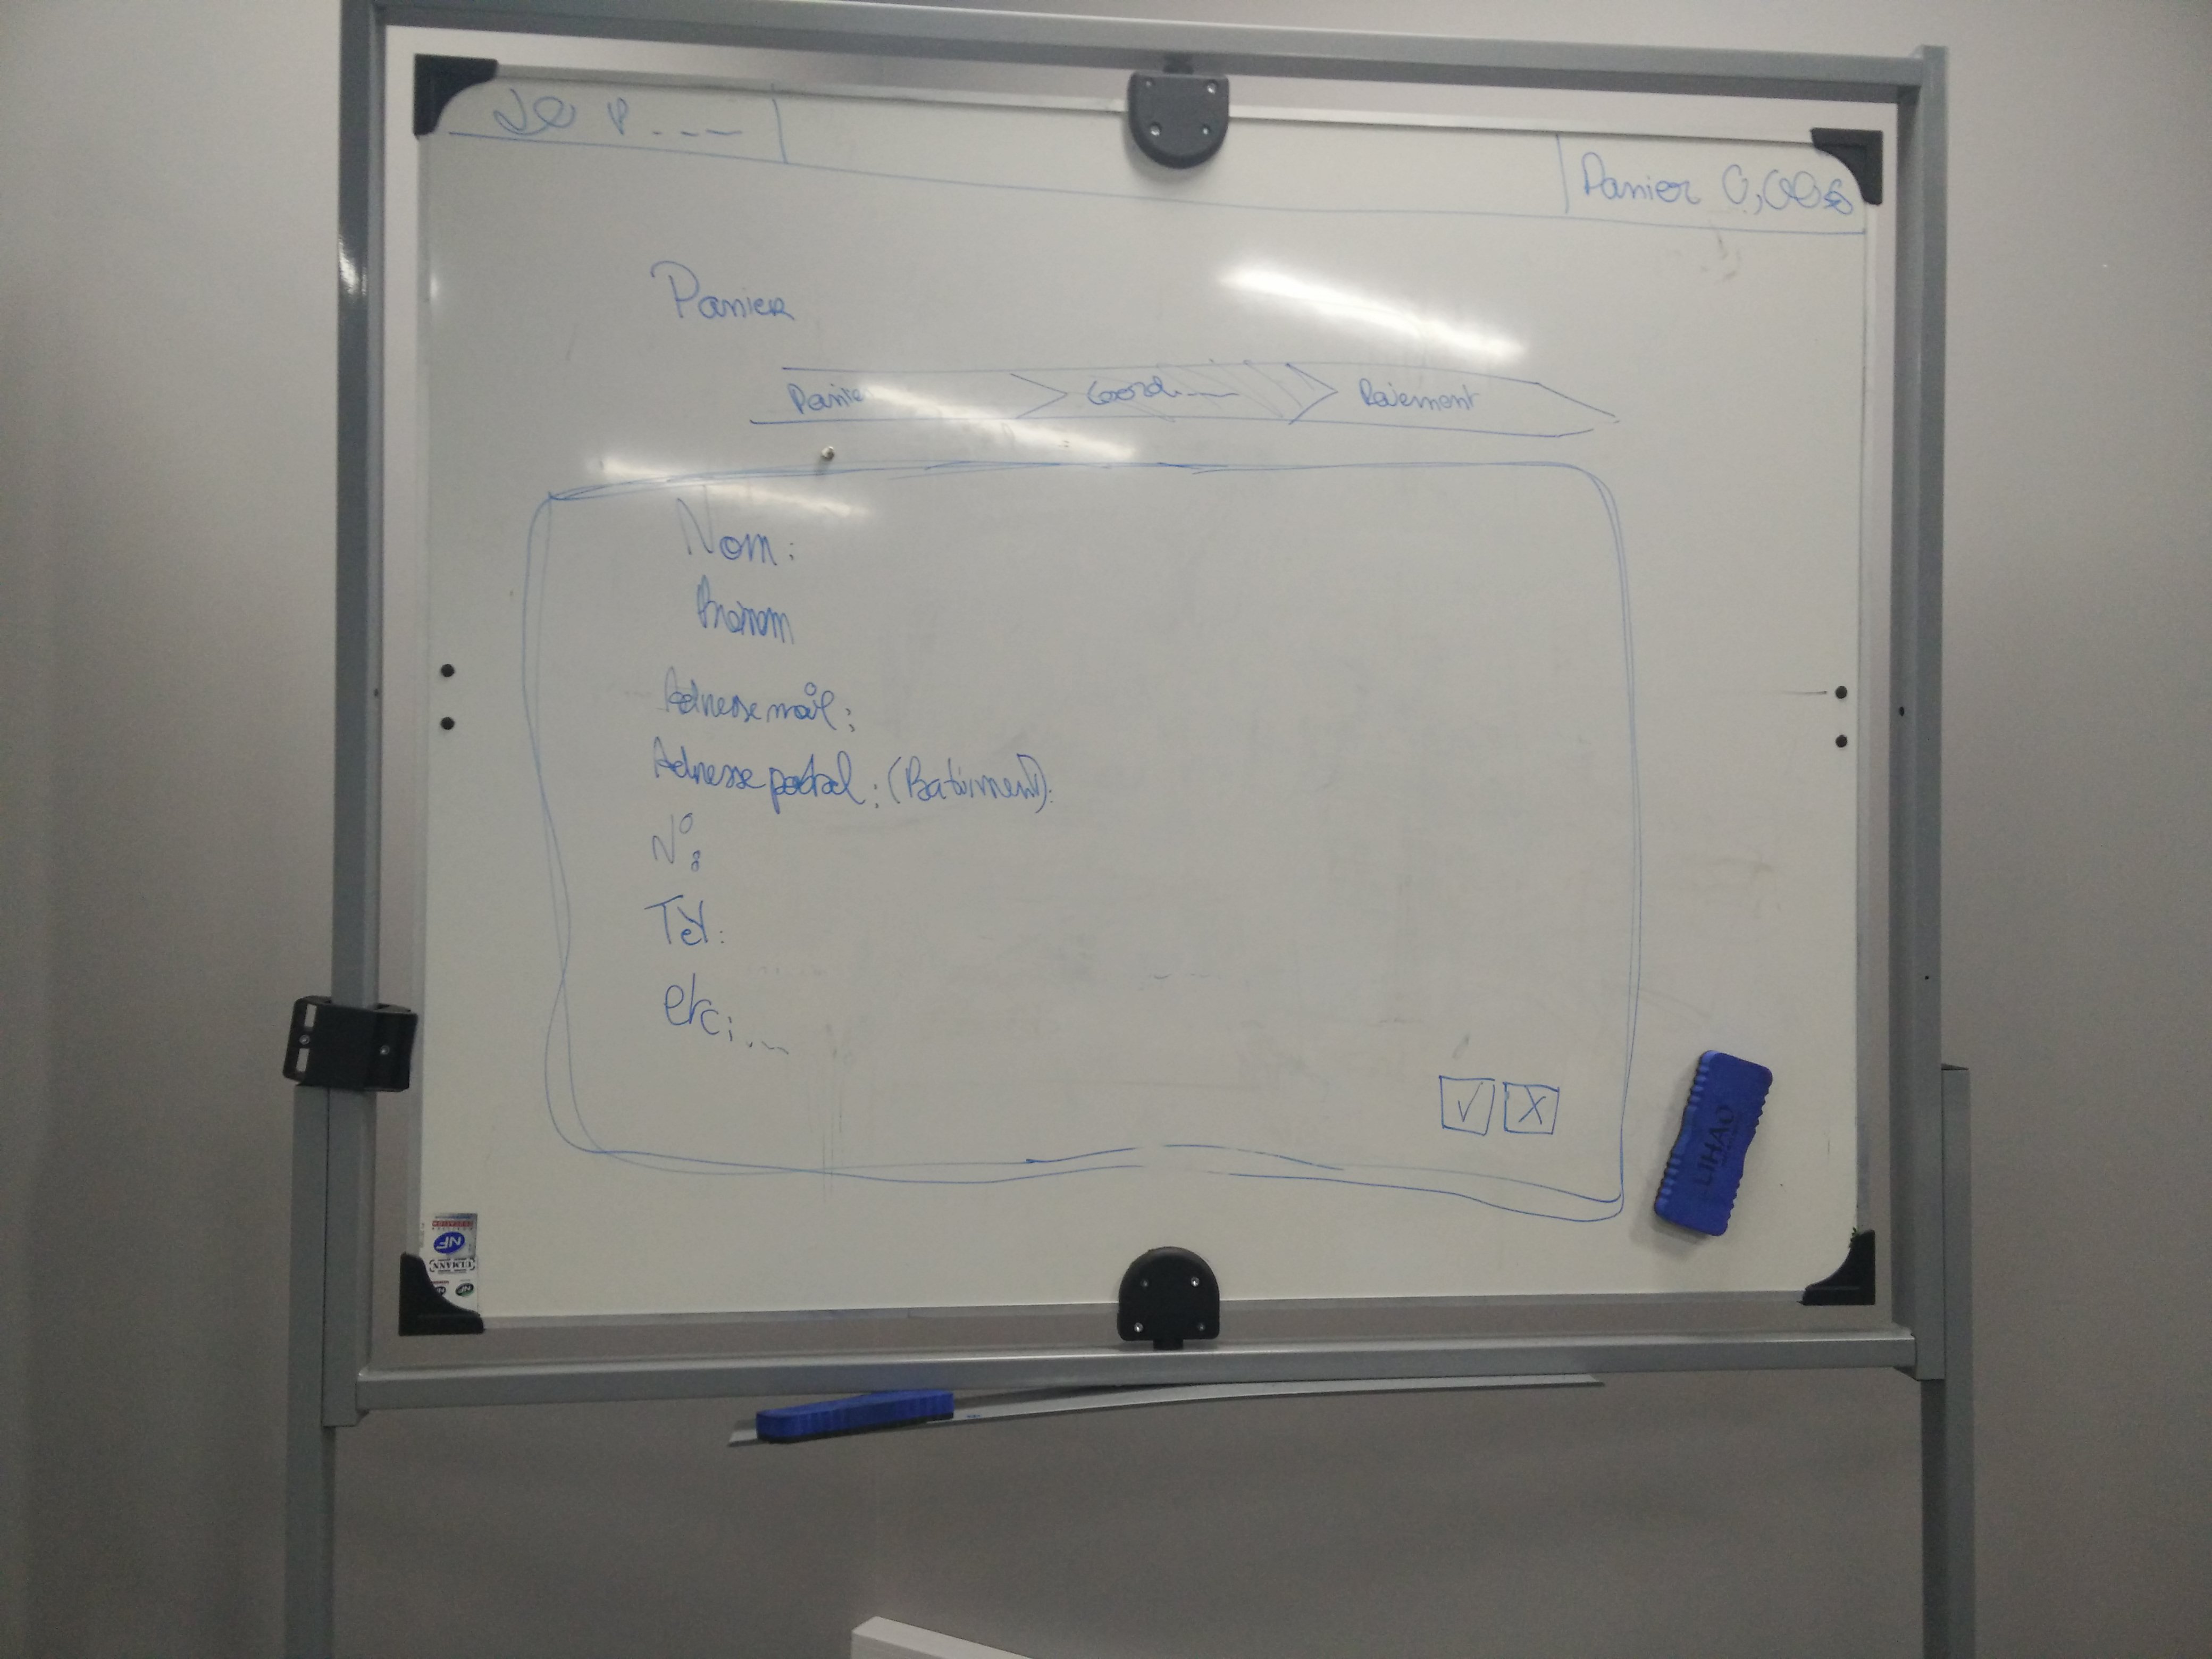 Panier 0,00€
Panier
Panier Coord.... Paiement
Nom:
Prénom
Adresse mail:
Adresse postal: (Batiment):
N°:
Tél:
etc;...
LIHAO
NF
ULMANN